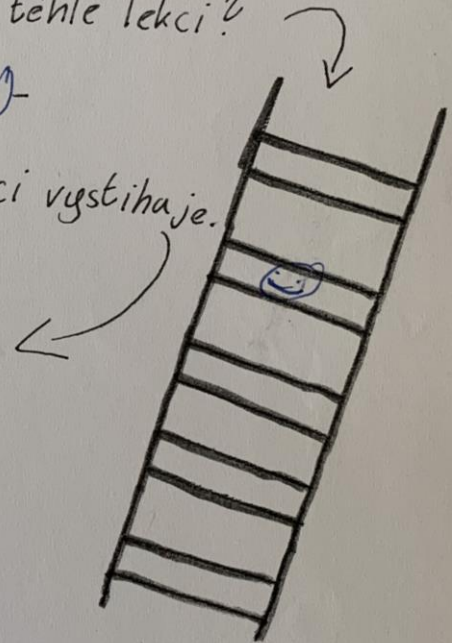 téhle lekci?
vystihuje.